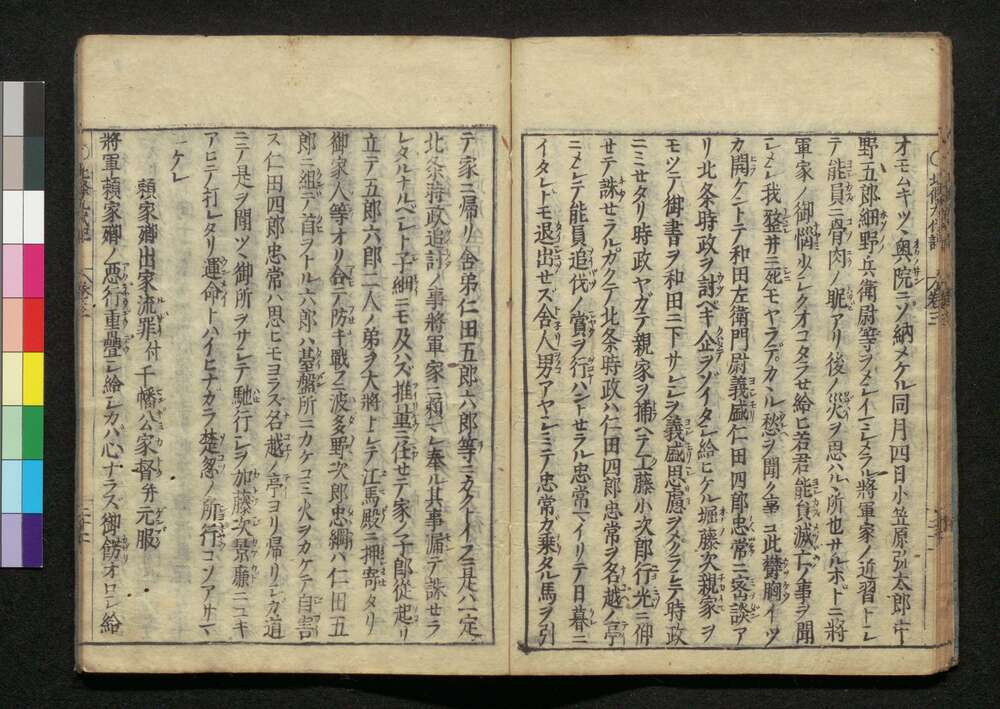 オモムキツヽ奥ノ院ニゾ納メケル同月四日小笠原弥太郎中
野五郎細野兵衛尉等ヲメシイマシメラル將軍家ノ近習トシ
テ能員ニ骨肉ノ眤アリ後ノ災ヲ思ハルヽ所也サルホドニ將
軍家ノ御惱少シクオコタラセ給ヒ若君能員滅亡ノ事ヲ聞
シメシ我整并ニ死モヤラデカヽル愁ヲ聞ク事ヨ此欝胸イツ
カ開ケントテ和田左衛門尉義盛仁田四郎忠常ニ密談ア
リ北条時政ヲ討ベキ企ヲゾイタシ給ヒケル堀藤次親家ヲ
モツテ御書ヲ和田ニ下サレシヲ義盛思慮ヲメグラシテ時政
ニミセタリ時政ヤガテ親家ヲ捕ヘテ工藤小次郎行光ニ仰
セテ誅セラルカクテ北条時政ハ仁田四郎忠常ヲ名越ノ亭
ニメシテ能員追伐ノ賞ヲ行ハントセラル忠常マイリテ日暮ニ
イタレドモ退出セズ舎人男アヤシミテ忠常カ乗タル馬ヲ引
テ家ニ帰リ舎弟仁田五郎六郎等ニカクトイフ是ハ一定
北条時政追討ノ事將軍家ニ頼マレ奉ル其事漏テ誅セラ
レタルナルベシト子細ニモ及ハズ推量ニ任セテ家ノ子郎從起リ
立テ五郎六郎二人ノ弟ヲ大將トシテ江馬殿ニ押寄タリ
御家人等オリ合テ防ギ戰フ波多野次郎忠綱ハ仁田五
郎ニ組テ首ヲトル六郎ハ基盤所ニカケコミ火ヲカケテ自害
ス仁田四郎忠常ハ思ヒモヨラズ名越ノ亭ヨリ帰リシカ道
ニテ是ヲ聞ツヽ御所ヲサシテ馳行シヲ加藤次景廉ニユキ
アヒテ打レタリ運命トハイヒナガラ楚忽ノ所行コソアサマ
シケレ
頼家卿出家流罪付千幡公家督并元服
將軍頼家卿ノ悪行重疊シ給シカバ心ナラズ御餝オロシ給